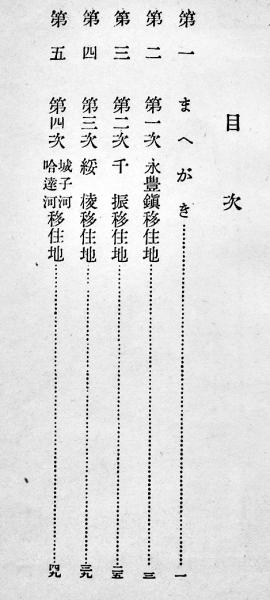 目次
第一 まへがき……一
第二 第一次 永豐鎭移住地……三
第三 第二次 千振移住地……二五
第四 第三次 綏稜移住地……三九
第五 第四次 城子河 哈達河 移住地……四九